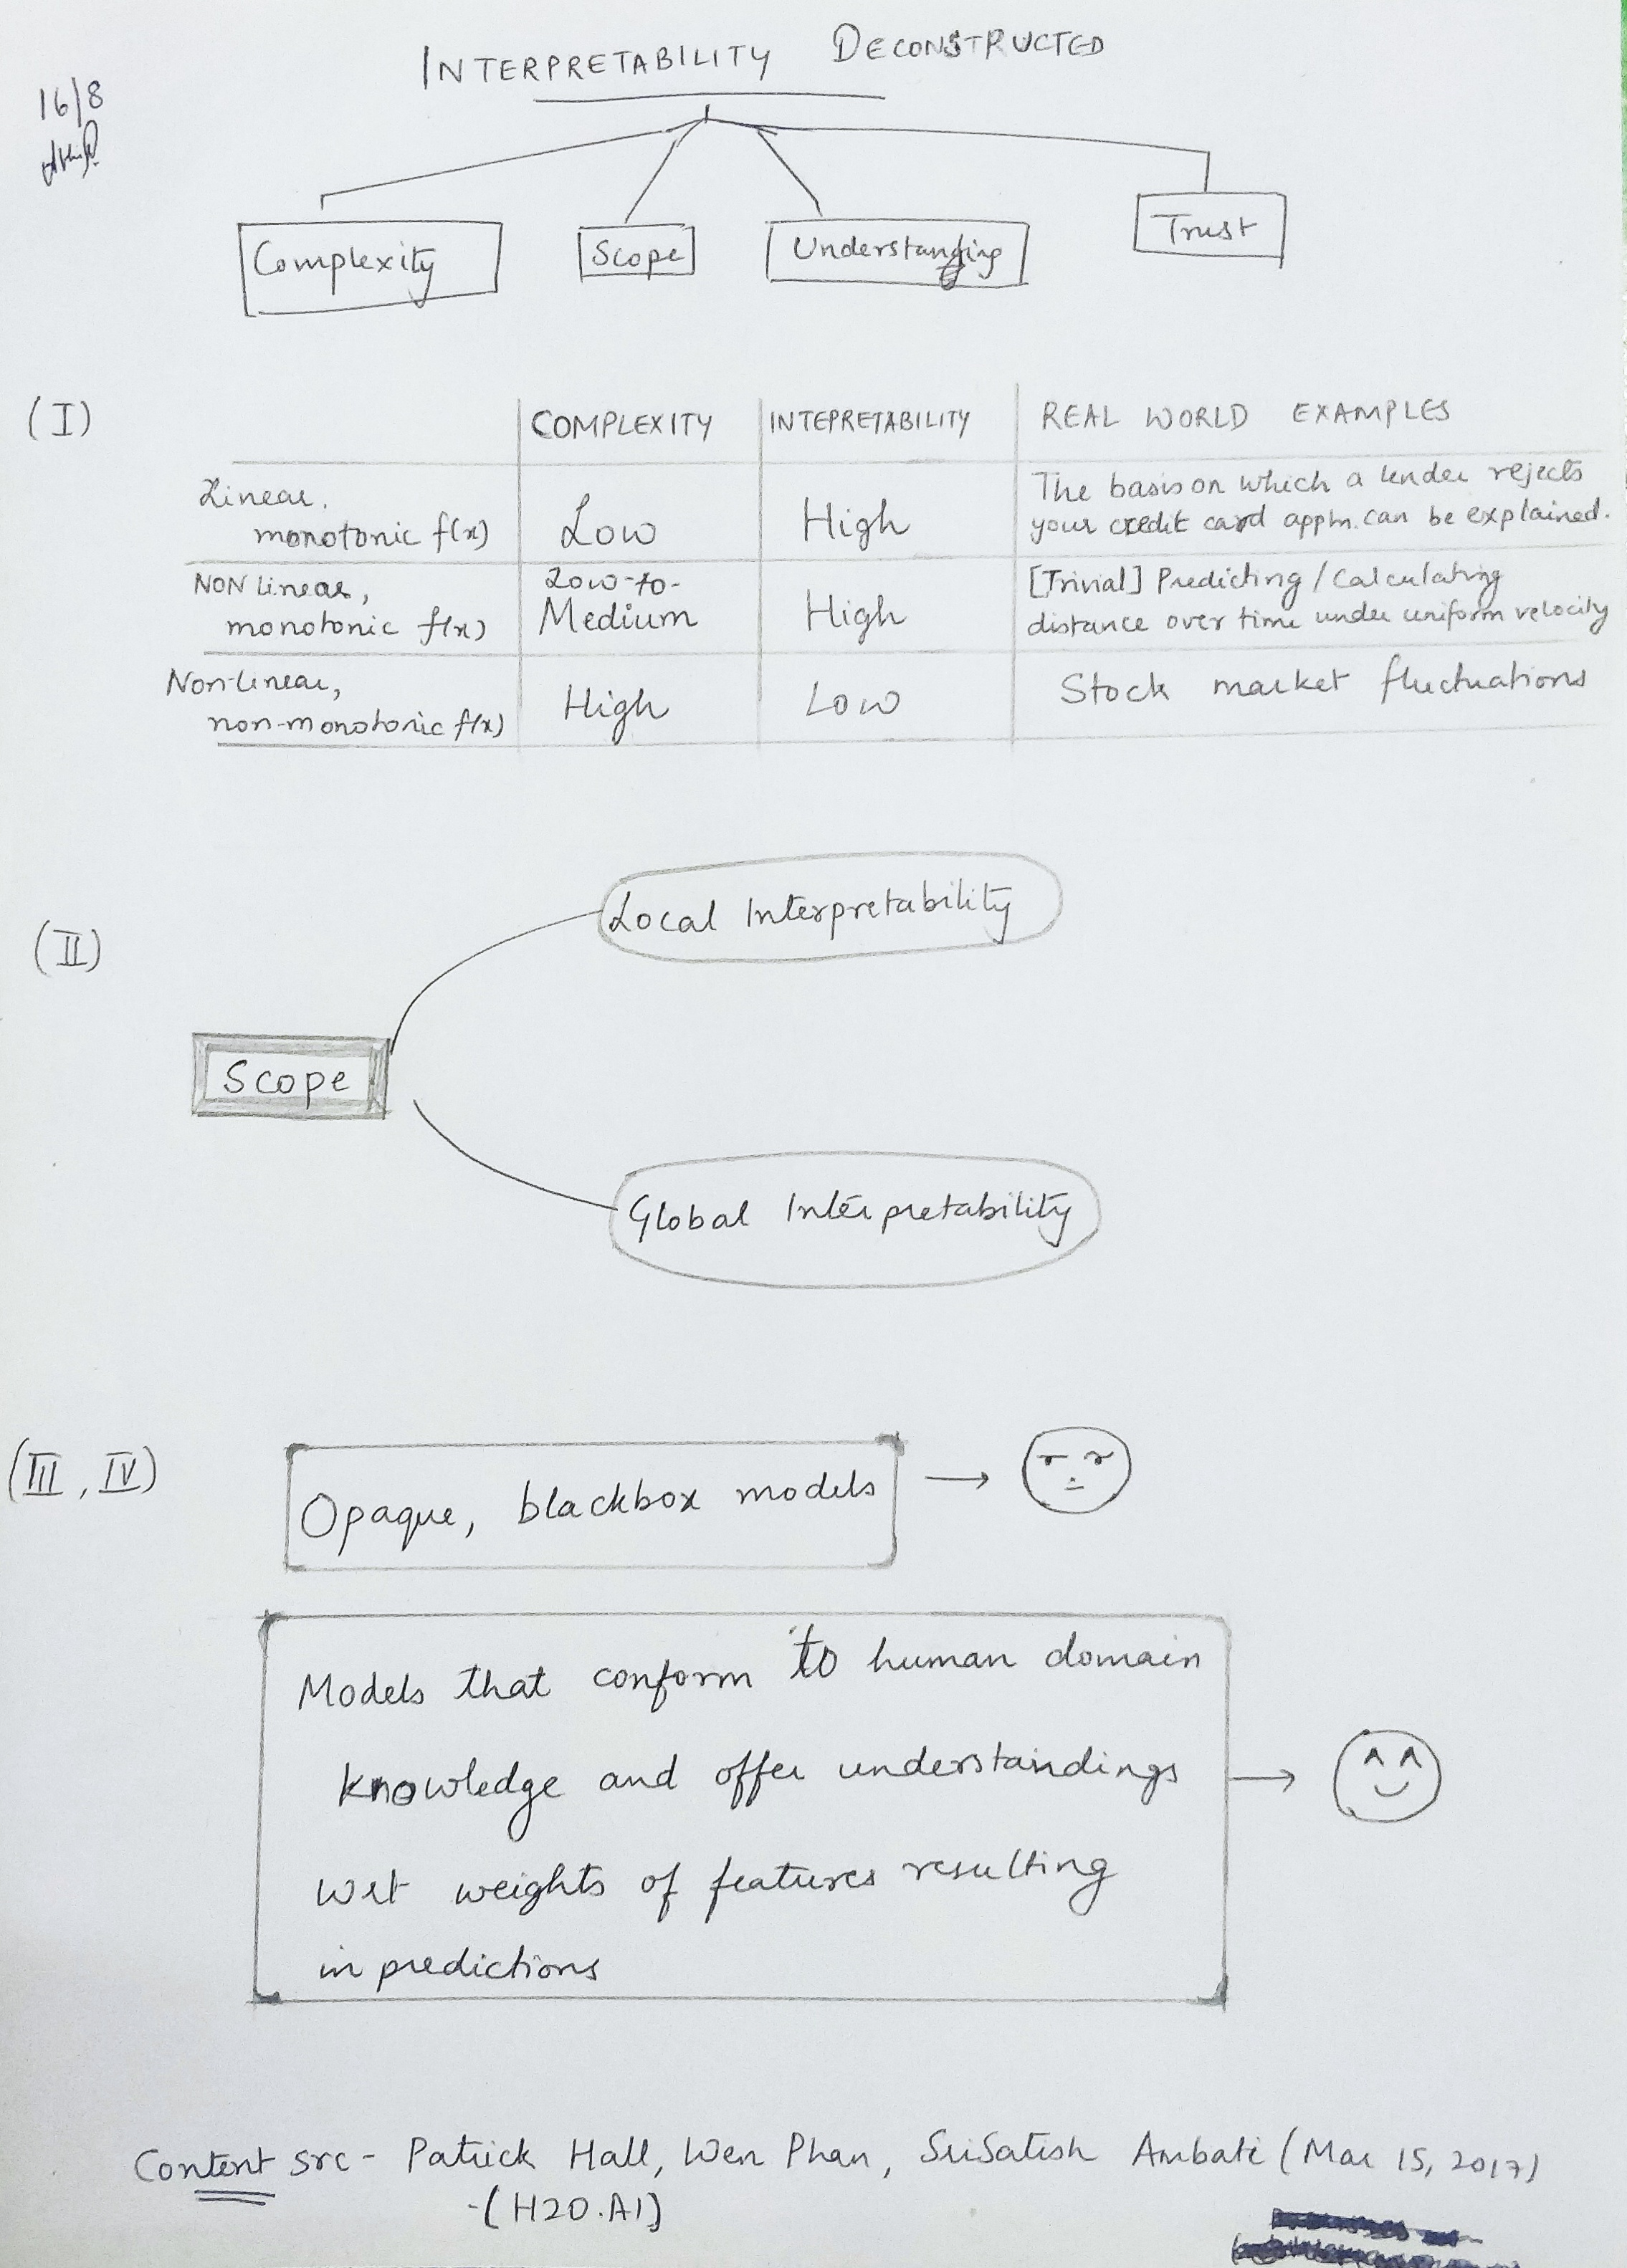 INTERPRETABILITY DECONSTRUCTED
16/8
Complexity
Scope
Understanding
Trust
(I)
COMPLEXITY
INTEPRETABILITY
REAL WORLD EXAMPLES
Linear,
monotonic f(x)
Low
High
The basis on which a lender rejects
your credit card appln. can be explained.
NON Linear,
monotonic f(x)
Low-to-
Medium
High
[Trivial] Predicting/Calculating
distance over time under uniform velocity
Non-linear,
non-monotonic f(x)
High
Low
Stock market fluctuations
(II)
Local Interpretability
Scope
Global Interpretability
(III, IV)
Opaque, blackbox models
Models that conform to human domain
knowledge and offer understandings
wrt weights of features resulting
in predictions
Content src - Patrick Hall, Wen Phan, SriSatish Ambati (Mar 15, 2017)
-(H2O.AI)